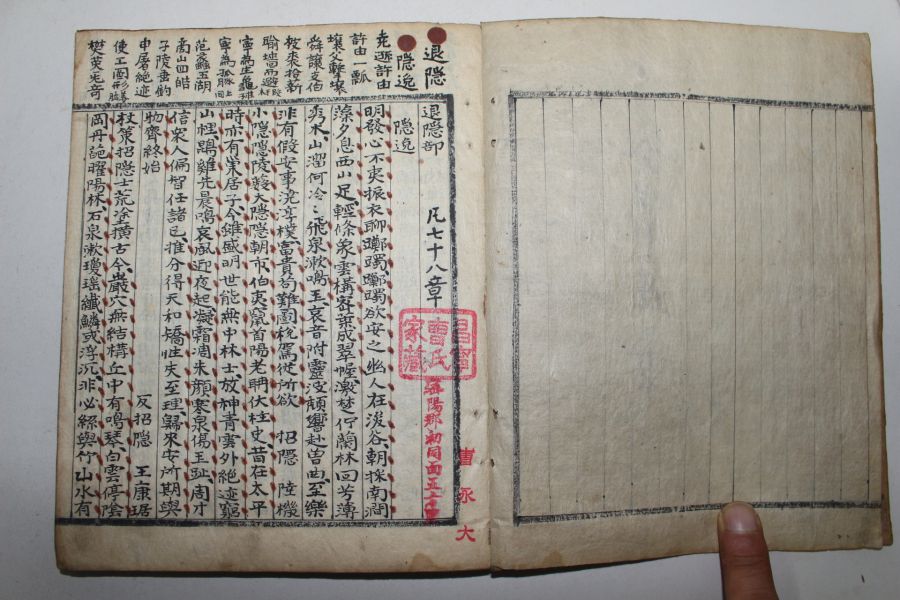 退隱
隱逸
堯遜許由
許由一瓢
壤父擊壤
舜讓支伯
披裘拾薪
踰墻而避
寧爲生龜
寧爲孤豚
范蠡五湖
商山四皓
子陵垂釣
申屠絶迹
使工圖形
退隱部 凡七十八章
隱逸
明發心不夷振衣聊躑躅躑躅欲安之幽人在浚谷朝採南澗
藻夕息西山足輕條象雲構密葉成翠幄激楚佇蘭林回芳薄
秀木山溜何泠々飛泉漱鳴玉哀音附靈波頹響赴曾曲至樂
非有假安事澆淳樸富貴苟難圖稅駕從所欲 招隱 陸機
小隱隱陵藪大隱隱朝市伯夷竄首陽老聃伏柱史昔在太平
時亦有巢居子今雖盛明世能無中林士放神青雲外絶迹窮
山裏鵾雞先晨鳴哀風迎夜起凝霜凋朱顏寒泉傷玉趾周才
信衆人偏智任諸己推分得天和矯性失至理歸來安所期與
物齊終始 反招隱 王康琚
杖策招隱士荒塗橫古今巖穴無結構丘中有鳴琴白雲停陰
岡丹葩曜陽林石泉漱瓊瑤纖鱗或浮沉非必絲與竹山水有
昌寧
曺氏
家藏
密陽郡初同面五方里
曺永大